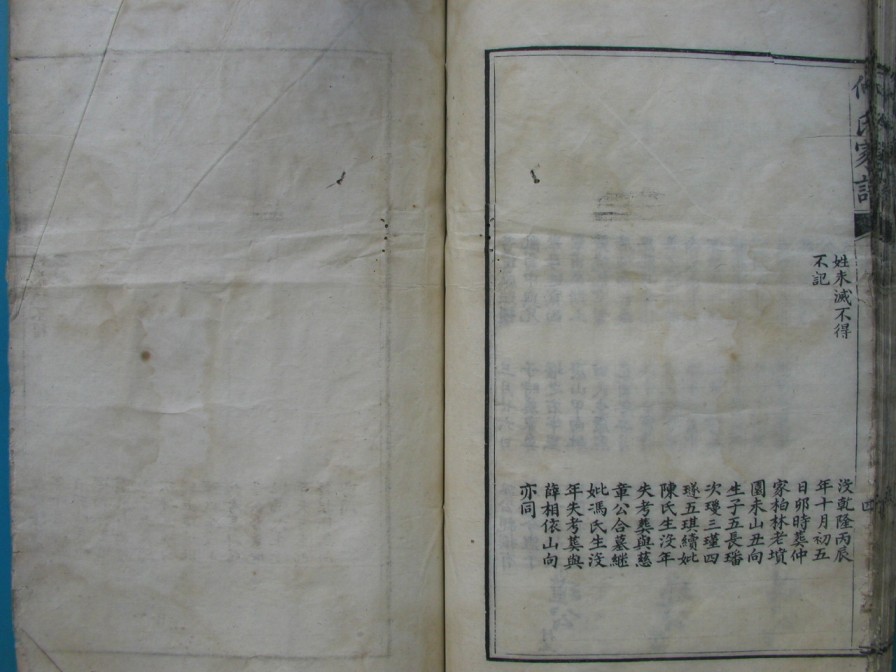 氏家譜
姓未滅不得
不記
没乾隆丙辰
年十月初五
日卯時葬仲
家柏林老墳
園未山丑向
生子五長璠
次瓊三瑾四
璲五琪續妣
陳氏生没年
失考葬與慈
章公合墓継
妣馮氏生没
年失考葬與
薛相依山向
亦同